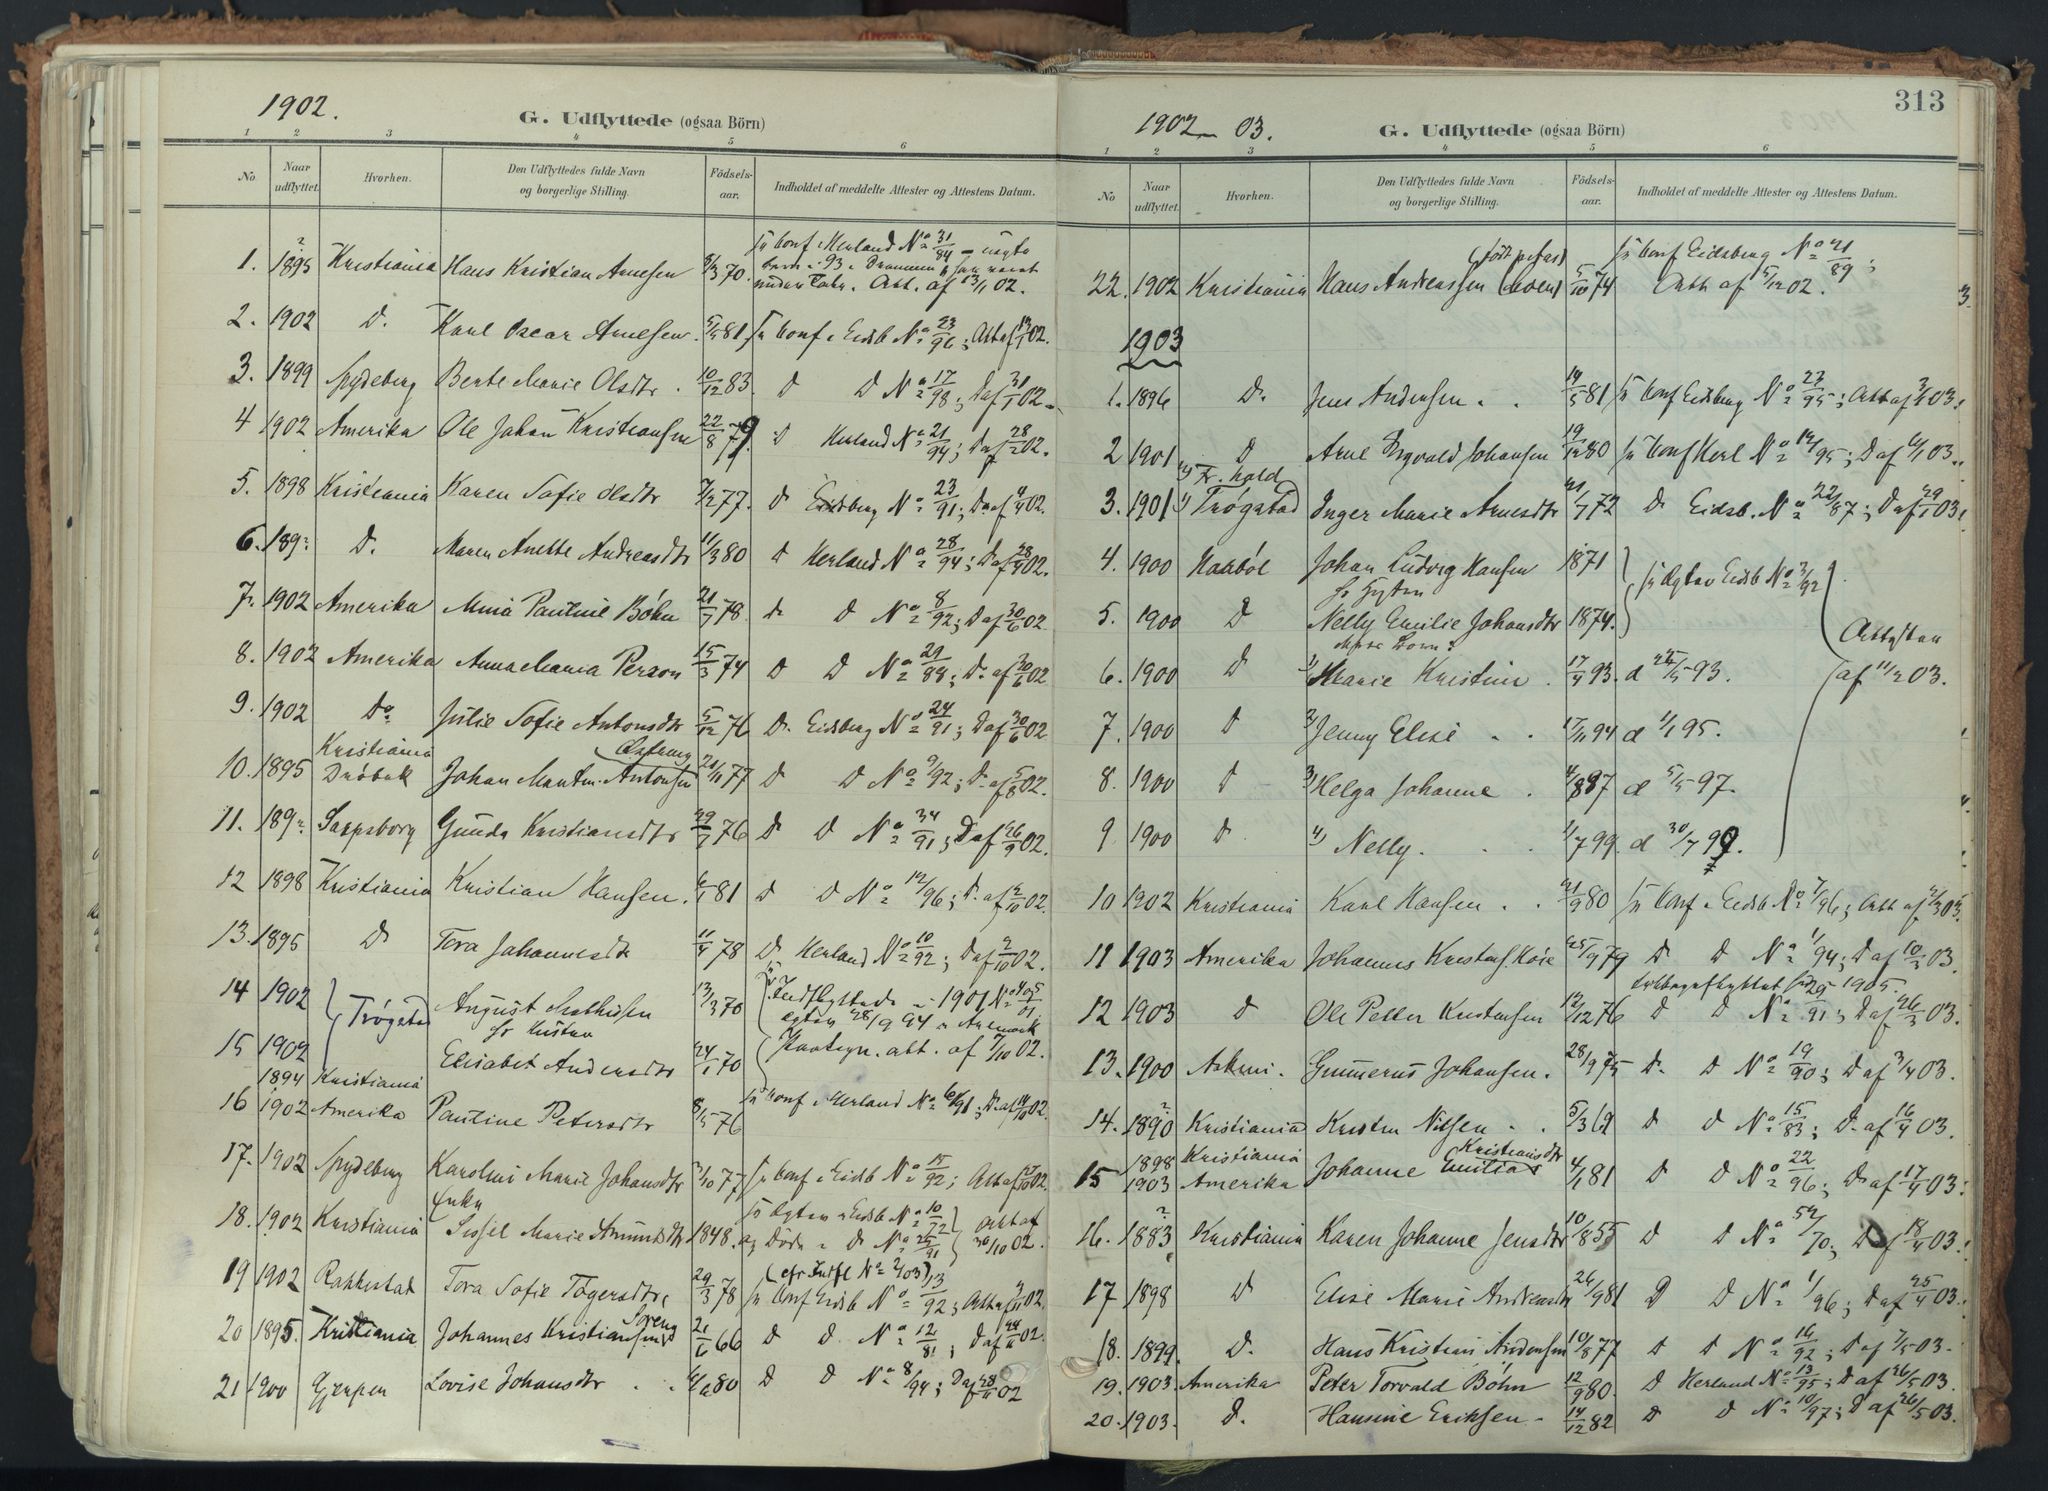 1902.
G. Udflyttede (ogsaa Börn)
1 2 3 4 5 6
No. Naar udflyttet. Hvorhen. Den Udflyttedes fulde Navn og borgerlige Stilling. Födsels-aar. Indholdet af meddelte Attester og Attestens Datum.
1. 1895 Kristiania Hans Kristian Arnesen 70. Conf. Herland No 31/84
Att. af 02.
2. 1902 D. Karl Oscar Arnesen. 81 Conf. Eidsb No 23/96; Att af 02.
3. 1899 Spydeberg Berte Marie Olsdtr. 10/12 83. D D No 17/98; D af 31/1 02.
4 1902 Amerika Ole Johan Kristiansen 22/8 79. D Herland No 21/94; D af 28/2 02.
5. 1898 Kristiania Karen Sofie Olsdtr 7/12 77. D Eidsberg No 23/91; D af 9/4 02.
6. 189 D. Maren Anette Andreasdtr 11/3 80 D Herland No 28/94; D af 28/4 02.
7. 1902 Amerika Mina Pauline Böhn 21/7 78. D D No 8/92; D af 30/6 02.
8. 1902 Amerika Anna Maria Person 15/3 74 D D No 29/89; D. af 30/6 02
9. 1902 Do Julie Sofie Antonsdtr 5/12 76 D. Eidsberg No 24/91; D af 30/6 02
10. 1895 Kristiania Dröbak Johan Martin Antonsen 77 D D No 9/92; D af 5/8 02.
11. 189 Sarpsborg Gunda Kristiansdtr 29/7 76 D D No 34/91; D af 26/9 02.
12 1898 Kristiania Kristian Hansen. 81 D D No 12/96; D. af 2/10 02.
13. 1895 D Tora Johannesdtr 11/4 78 D. Herland No 10/92; D af 2/10 02.
14 1902 Trögstad August Mathisen 13/3 70 Indflyttede 1901 No
94
15 1902 Elisabet Andersdtr 24/1 70 att. af 7/10 02.
1894 Kristiania
16 1902 Amerika Pauline Petersdtr 8/5 76 Conf. Herland No 6/91; D af 14/10 02.
17. 1902 Spydeberg Karoline Marie Johansdtr 3/10 77 Conf. Eidb No 15/92; Att af 02.
Enke
18. 1902 Kristiania Sissel Marie Amundsdtr 1848. Eidsb No 10/72 Att af
D No 25/91 30/10 02.
19 1902 Rakkestad Tora Sofie Tögersdtr. 29/3 78 (cfr Indfl No 2/03)
Conf Eidb No 13/92; Att af 02.
20 1895. Kristiania Johannes Kristiansen 21/6 66 D D No 12/81; D af 02.
21 1900 Gjerpen Lovise Johansdtr 80 D D No 8/94; D af 28/11 02
1902 - 03.
G. Udflyttede (ogsaa Börn)
313
1 2 3 4 5 6
No Naar udflyttet. Hvorhen. Den Udflyttedes fulde Navn og borgerlige Stilling. Födsels-aar. Indholdet af meddelte Attester og Attestens Datum.
22. 1902 Kristiania Hans Andreassen 5/10 74 Conf Eidsberg No 21/89;
Att af 5/12 02.
1903
1. 1896 D. Jens Andersen. 14/5 81 Conf Eidsberg No 23/95; Att af 03.
2 1901 D Arne Ingvald Johansen 19/12 80 Conf Herl No 14/95; D af 6/1 03.
3. 1901 Trögstad Inger Marie Arnesdtr 21/7 72 D Eidsb. No 22/87; D af 29/1 03.
4. 1900 Haaböl Johan Ludvig Hansen 1871 Egtev Eidsb No 3/92
5. 1900 D Nelly Emilie Johansdtr 1874.
Attesten
6. 1900 D 1) Marie Kristine 17/4 93. d 93. af 11/2 03.
7. 1900 D 2) Jenny Elise 17/11 94 d 1/1 95.
8. 1900 D 3) Helga Johanne 4/8 97 d 5/5 97.
9 1900 D 4) Nelly. 1/7 99. d 30/7 99.
10 1902 Kristiania Karl Hansen 21/9 80 Conf. Eidsb No 7/96; Att af 03.
11 1903 Amerika Johannes Kristens. 25/9 79 D D No 1/94; D af 10/3 03.
tilbageflyttet 1905.
12 1903 D Ole Petter Kristensen 12/12 76 D D No 29/91; D af 26/3 03.
13. 1900 Askim. Gunnerus Johansen. 28/9 75 D. D No 19/90; D af 3/4 03.
14. 1890 Kristiania Kristen Nilsen 5/3 69 D D No 15/83; D. af 16/4 03.
15 1898 1903 Kristiania Amerika Johanne Emilie Kristiansdtr 4/1 81 D D No 22/96; D af 17/4 03.
16. 1883 Kristiania Karen Johanne Jensdtr 10/8 55 D D No 54/70; D af 18/4 03.
17 1898 D Elise Marie Andreasdtr 26/9 81 D D No 1/96; D af 25/4 03.
18. 1899. D. Hans Kristian Andersen 10/8 77 D D No 16/92; D af 7/5 03.
19. 1903. Amerika Peter Torvald Böhn 12/9 80. D Herland No 13/95; D af 26/5 03.
20. 1903. D. Hansine Eriksen 14/12 82 D D No 10/97; D af 26/5 03.